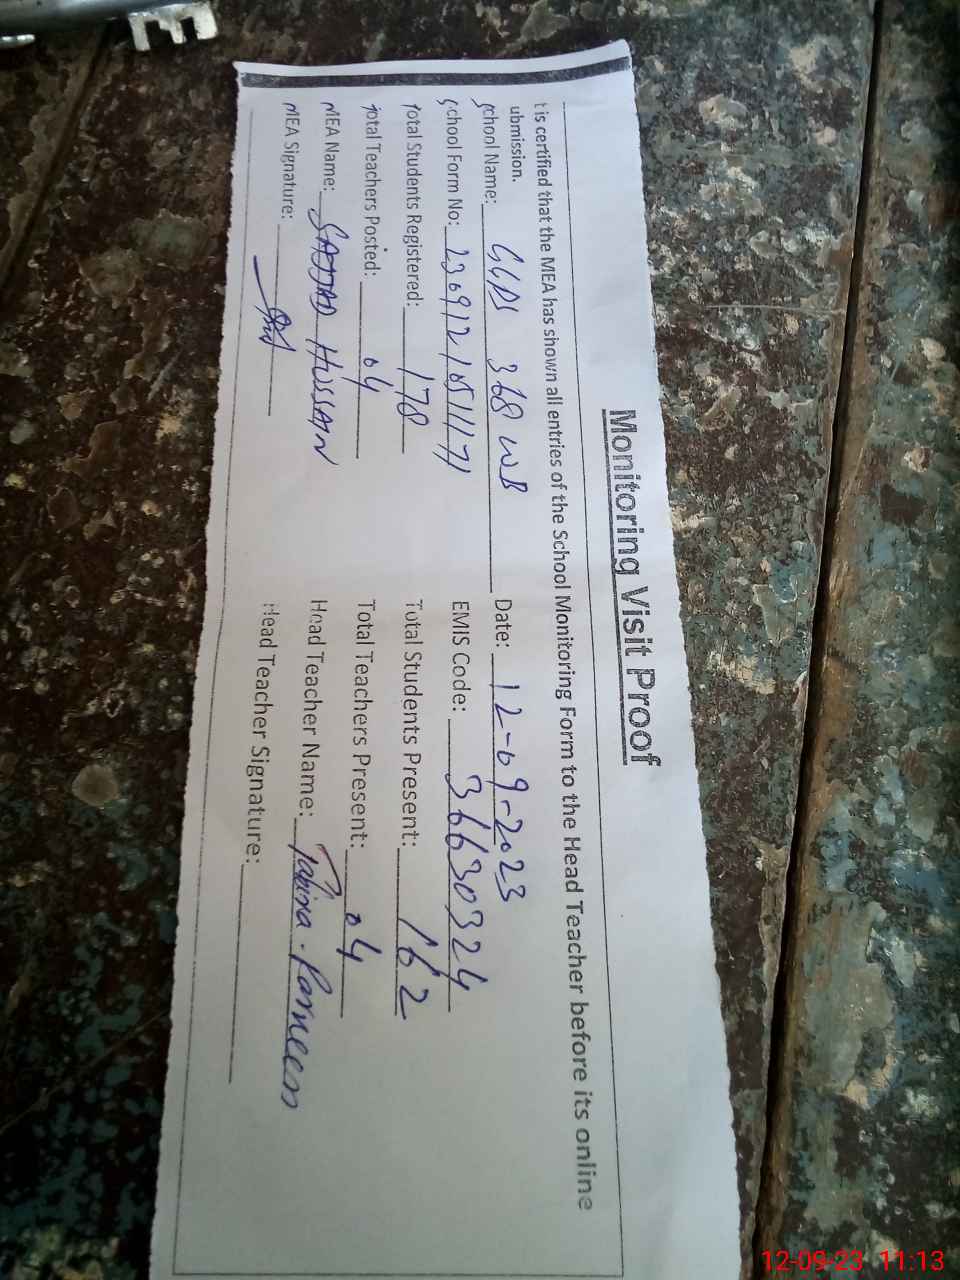 Monitoring Visit Proof
t is certified that the MEA has shown all entries of the School Monitoring Form to the Head Teacher before its online
ubmission.
School Name: GGPS 368 WB Date: 12-09-2023
School Form No: 230912105111171 EMIS Code: 36630324
Total Students Registered: 178 Total Students Present: 162
Total Teachers Posted: 04 Total Teachers Present: 04
MEA Name: SAJJAD HUSSAIN Head Teacher Name: Parneen
MEA Signature: Head Teacher Signature:
12-09-23 11:13